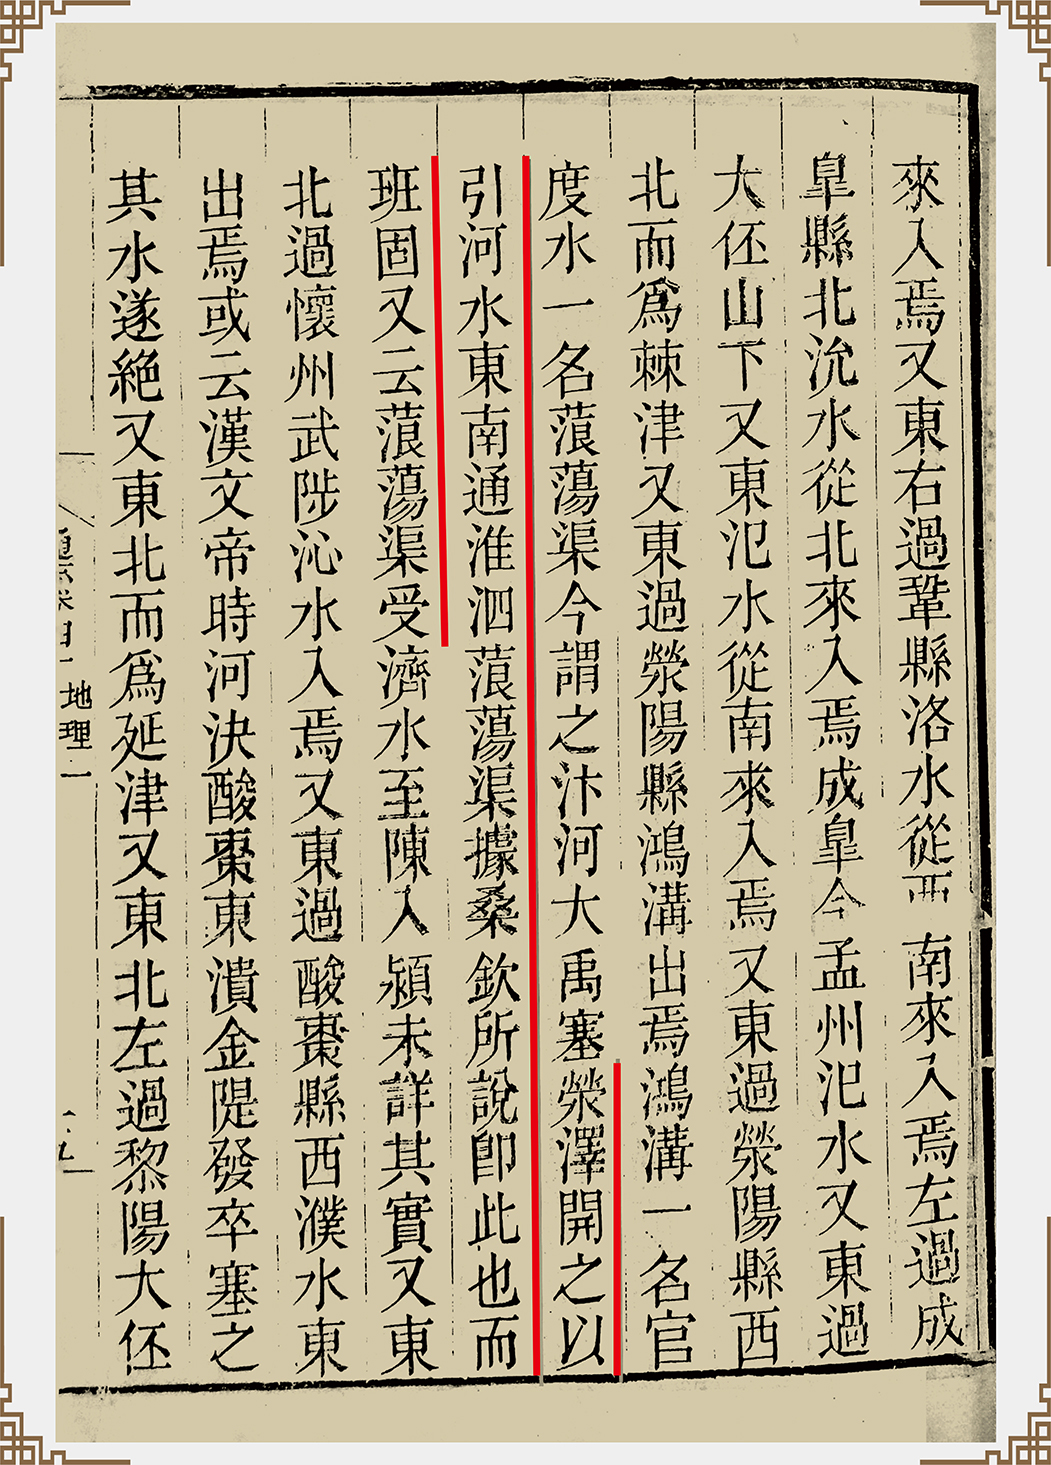 來入焉又東右過鞏縣洛水從西南來入焉左過成
臯縣北沇水從北來入焉成臯今孟州汜水又東過
大伾山下又東汜水從南來入焉又東過滎陽縣西
北而為棘津又東過滎陽縣鴻溝出焉鴻溝一名官
度水一名蒗蕩渠今謂之汴河大禹塞滎澤開之以
引河水東南通淮泗蒗蕩渠據桑欽所說卽此也而
班固又云蒗蕩渠受濟水至陳入潁未詳其實又東
北過懷州武陟沁水入焉又東過酸棗縣西濮水東
出焉或云漢文帝時河決酸棗東潰金隄發卒塞之
其水遂絕又東北而為延津又東北左過黎陽大伾
地理一